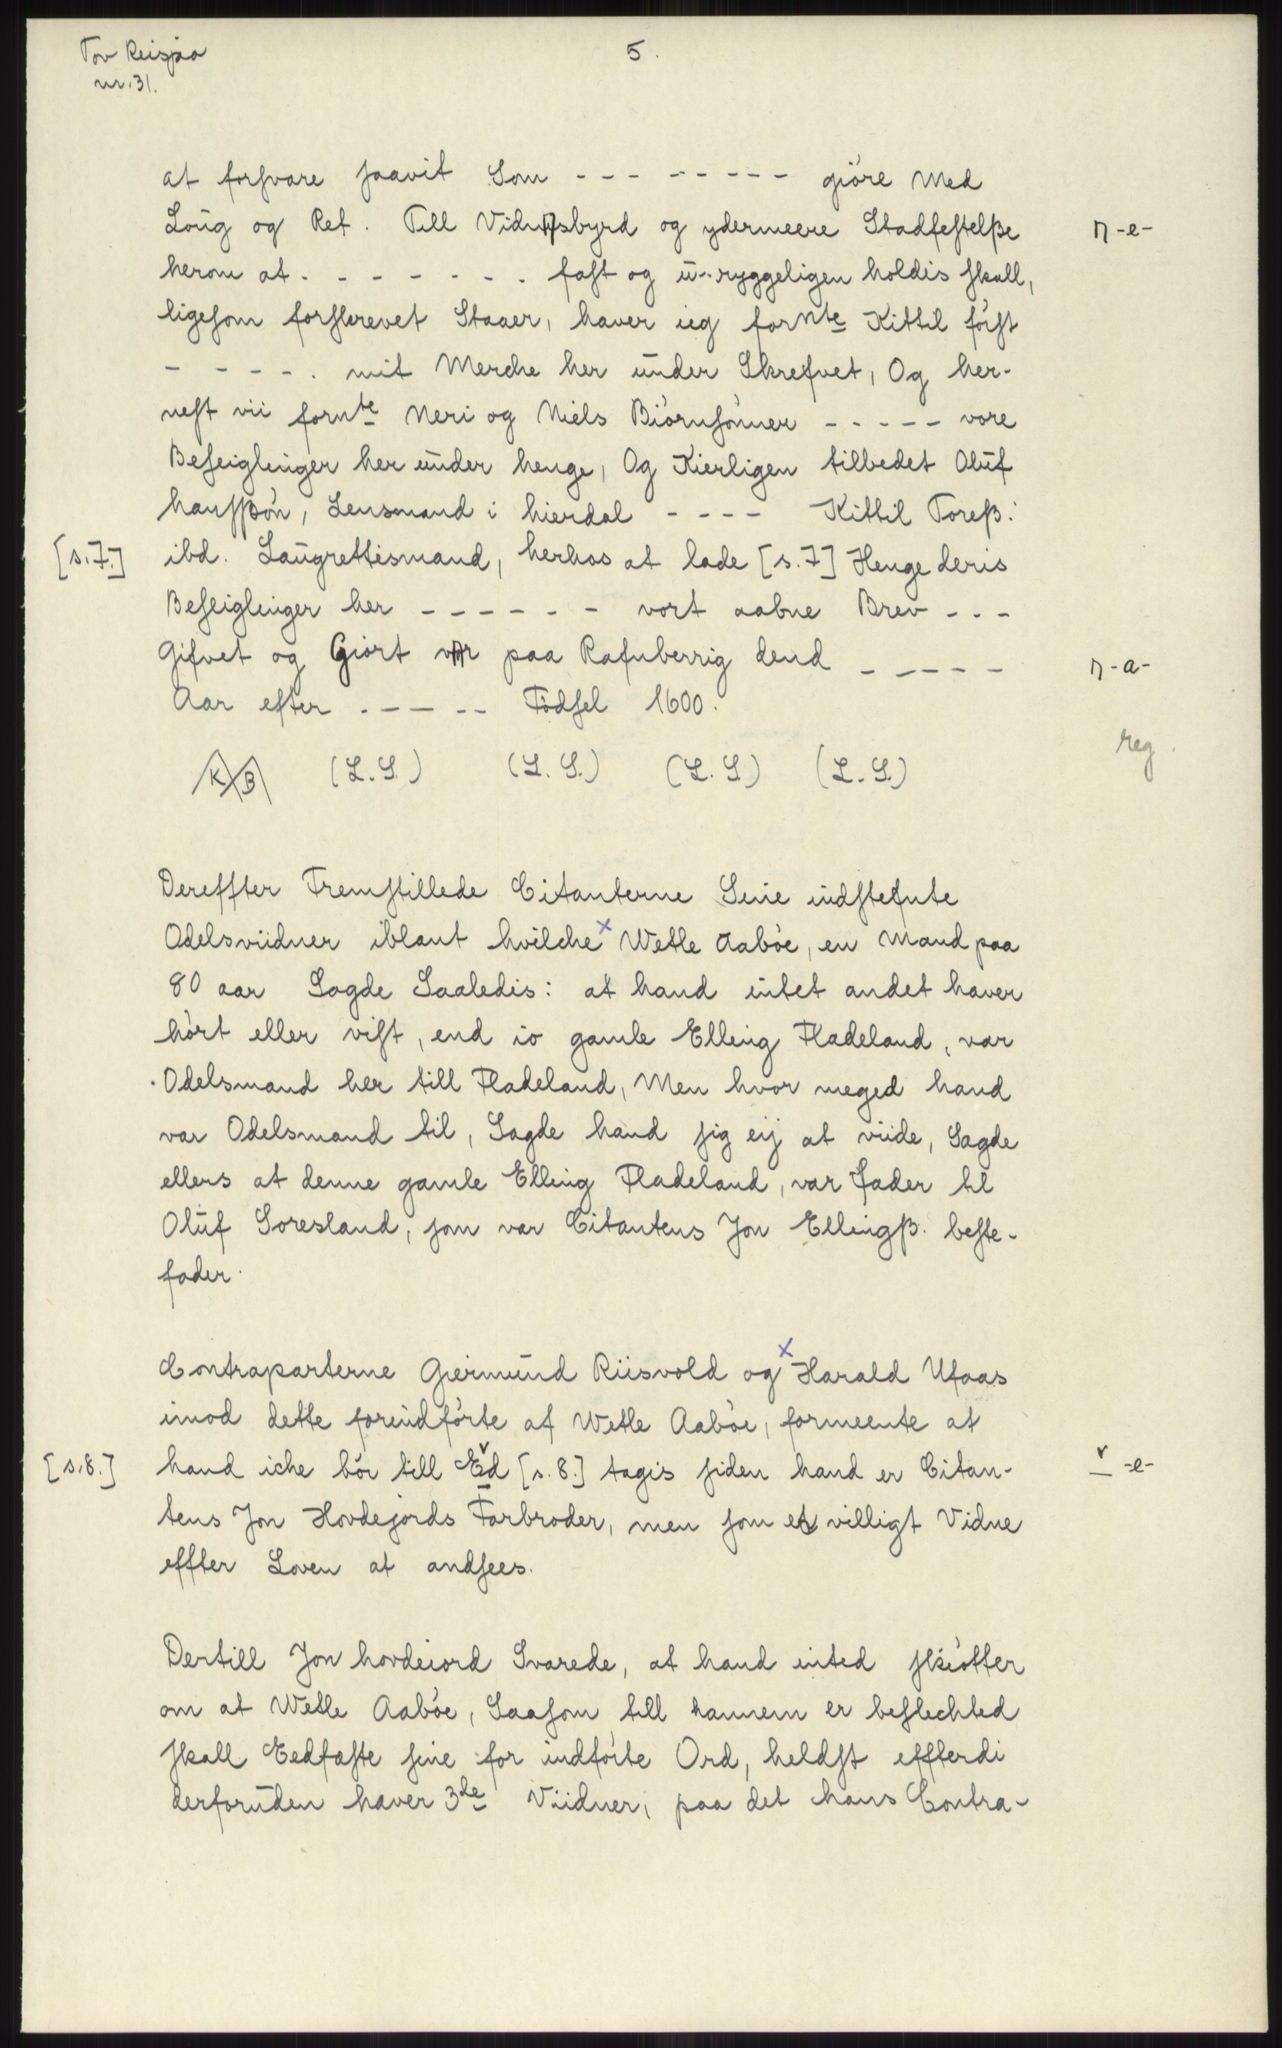 Tov Reisjaa
nr. 31.
5.
at forsvare saavit Som - - - - - - - - giöre Med
Loug og Ret. Till Vidnesbyrd og ydermeere Stadfestelße
n -e-
herom at - - - - - - - fast og u-ryggeligen holdis skall,
ligesom forskrevet Staaer, haver ieg fornte Kittil först
- - - - . mit Merche her under Skrefvet, Og her-
neft vii fornte Neri og Niels Biörnsönner - - - - - vore
Beseiglinger her under henge, Og Kierligen tilbedet Oluf
hansßön, Lensmand i hierdal - - - - Kittil Toreß.
[s. 7.] ibd. Laugrettismand, herhos at lade [s. 7] Henge deris
Beseiglinger her - - - - - - vort aabne Brev - - -
Gifvet og Giort var paa Rafnberrig dend - - - - -
n -a-
Aar efter - - - - - Födsel 1600.
reg.
K B (L.S.) (L.S.) (L.S.) (L.S.)
Dereffter Fremstillede Citanterne Sine indstefnte
Odelsviidner iblant hvilche x Wetle Aaböe, en Mand paa
80 aar Sagde Saaledis: at hand intet andet haver
hört eller vist, end io gamle Elling Fladeland, var
Odelsmand her till Fladeland, Men hvor meged hand
var Odelsmand til, Sagde hand sig eij at viide, Sagde
ellers at denne gamle Elling Fladeland, var fader til
Oluf Soresland, som var Citantens Jon Ellingß. beste-
fader.
Contraparterne Giermund Riisvold og x Harald Ufaas
imod dette foreindförte af Wetle Aaböe, formeente at
[s. 8.] hand iche bör till Ed [s. 8.] tagis siden hand er Citan-
v -e-
tens Jon Hovdejords Farbroder, men som et villigt Vidne
effter Loven at andsees.
Dertill Jon hovdeiord Svarede, at hand inted skiötter
om at Wetle Aaböe, Saasom till hannem er beslechted
skall Eedfaste sine for indförte Ord, heldst effterdi
derforuden haver 3de Viidner, paa det hans Contra-